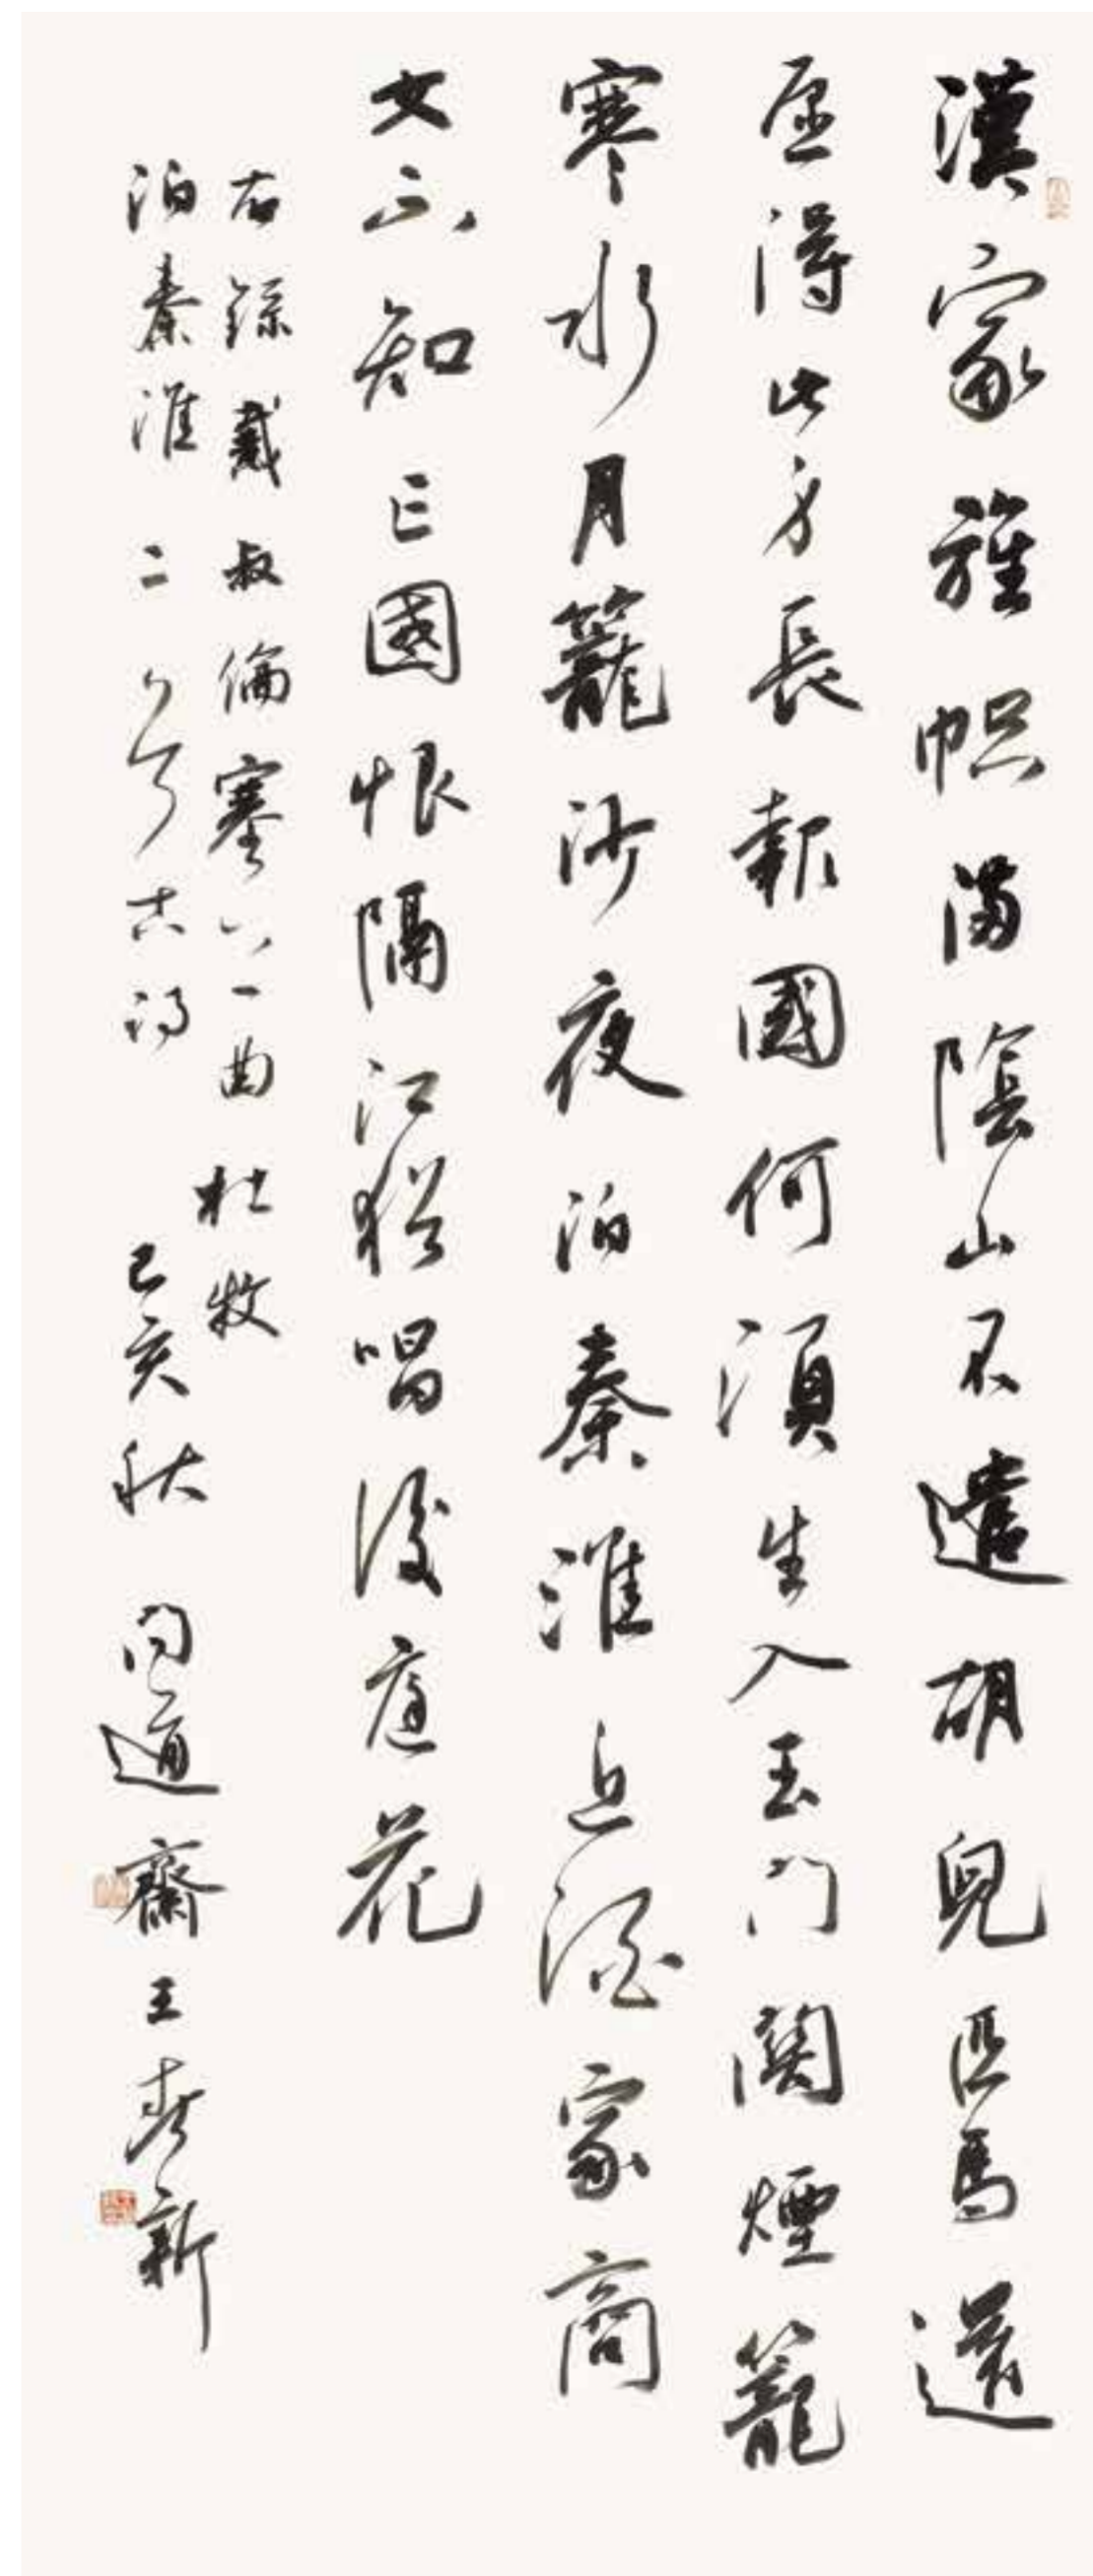 漢家旌幟滿陰山不遣胡兒匹馬還
愿得此身長報國何須生入玉門關煙籠
寒水月籠沙夜泊秦淮近酒家商
女不知亡國恨隔江猶唱後庭花
右錄戴叔倫塞上曲杜牧
泊秦淮二古詩己亥秋問道齋王春新